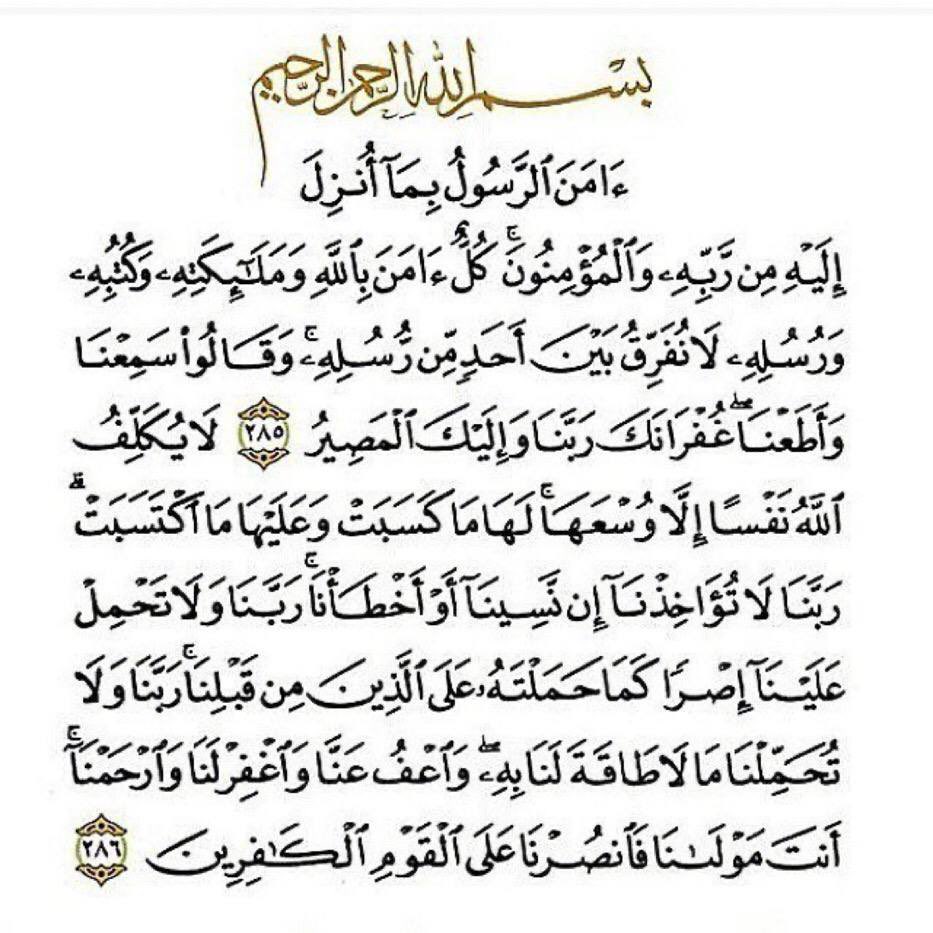 بِسْمِ اللهِ الرَّحْمٰنِ الرَّحِيمِ
ءَامَنَ ٱلرَّسُولُ بِمَآ أُنزِلَ
إِلَيْهِ مِن رَّبِّهِۦ وَٱلْمُؤْمِنُونَۚ كُلٌّ ءَامَنَ بِٱللَّهِ وَمَلَـٰٓئِكَتِهِۦ وَكُتُبِهِۦ
وَرُسُلِهِۦ لَا نُفَرِّقُ بَيْنَ أَحَدٍ مِّن رُّسُلِهِۦۚ وَقَالُوا۟ سَمِعْنَا
وَأَطَعْنَاۖ غُفْرَانَكَ رَبَّنَا وَإِلَيْكَ ٱلْمَصِيرُ ٢٨٥ لَا يُكَلِّفُ
ٱللَّهُ نَفْسًا إِلَّا وُسْعَهَاۚ لَهَا مَا كَسَبَتْ وَعَلَيْهَا مَا ٱكْتَسَبَتْۗ
رَبَّنَا لَا تُؤَاخِذْنَآ إِن نَّسِينَآ أَوْ أَخْطَأْنَاۚ رَبَّنَا وَلَا تَحْمِلْ
عَلَيْنَآ إِصْرًا كَمَا حَمَلْتَهُۥ عَلَى ٱلَّذِينَ مِن قَبْلِنَاۚ رَبَّنَا وَلَا
تُحَمِّلْنَا مَا لَا طَاقَةَ لَنَا بِهِۦۖ وَٱعْفُ عَنَّا وَٱغْفِرْ لَنَا وَٱرْحَمْنَآۚ
أَنتَ مَوْلَىٰنَا فَٱنصُرْنَا عَلَى ٱلْقَوْمِ ٱلْكَـٰفِرِينَ ٢٨٦